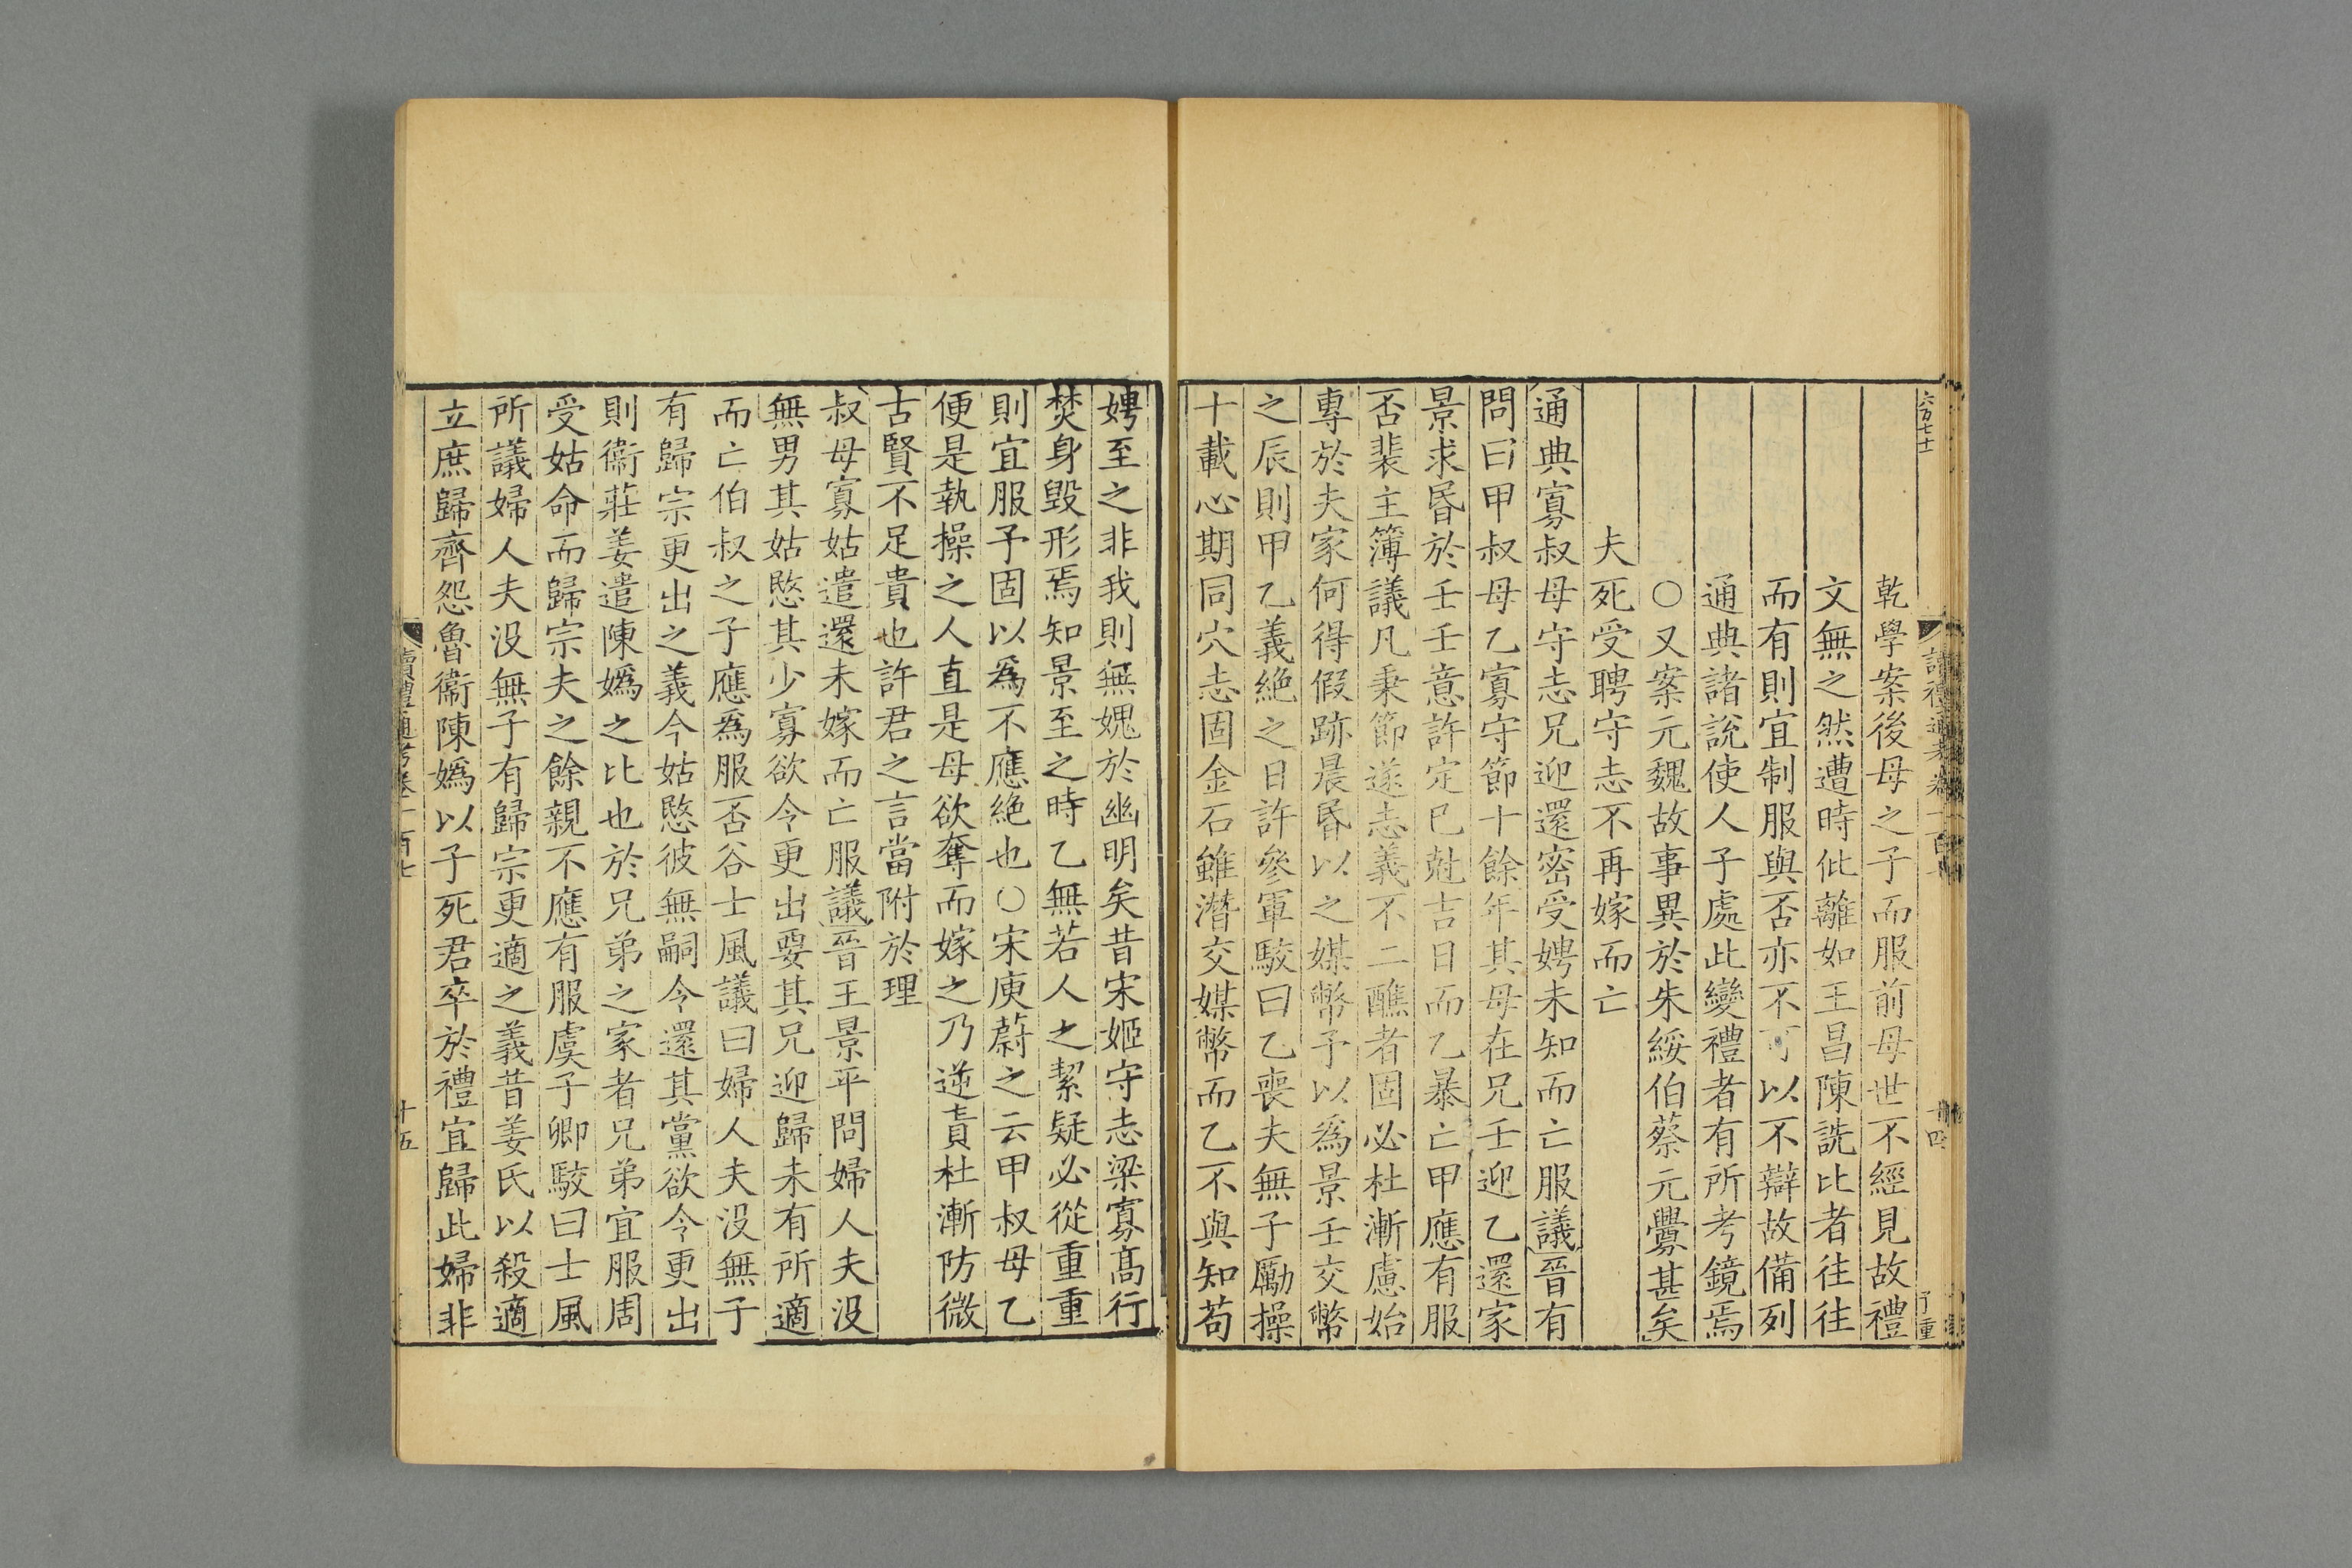 六百七十
讀禮通考卷一百七
十四
乾學案後母之子而服前母世不經見故禮
文無之然遭時仳離如王昌陳詵比者往往
而有則宜制服與否亦不可以不辯故備列
通典諸說使人子處此變禮者有所考鏡焉
○又案元魏故事異於朱綏伯蔡元釁甚矣
夫死受聘守志不再嫁而亡
通典寡叔母守志兄迎還密受娉未知而亡服議晉有
問曰甲叔母乙寡守節十餘年其母在兄壬迎乙還家
景求昏於壬壬意許定已尅吉日而乙暴亡甲應有服
否裴主簿議凡秉節遂志義不二醮者固必杜漸慮始
專於夫家何得假跡晨昏以之媒幣予以為景壬交幣
之辰則甲乙義絕之日許參軍駮曰乙喪夫無子勵操
十載心期同穴志固金石雖潛交媒幣而乙不與知苟
娉至之非我則無媿於幽明矣昔宋姬守志梁寡髙行
焚身毀形焉知景至之時乙無若人之絜疑必從重重
則宜服予固以爲不應絕也○宋庾蔚之云甲叔母乙
便是執操之人直是母欲奪而嫁之乃逆責杜漸防微
古賢不足貴也許君之言當附於理
叔母寡姑遣還未嫁而亡服議晉王景平問婦人夫沒
無男其姑愍其少寡欲令更出要其兄迎歸未有所適
而亡伯叔之子應爲服否谷士風議曰婦人夫沒無子
有歸宗更出之義今姑愍彼無嗣令還其黨欲令更出
則衞莊姜遣陳嬀之比也於兄弟之家者兄弟宜服周
受姑命而歸宗夫之餘親不應有服虞子卿駮曰士風
所議婦人夫沒無子有歸宗更適之義昔姜氏以殺適
立庶歸齊怨魯衞陳嬀以子死君卒於禮宜歸此婦非
讀禮通考卷一百七
十五